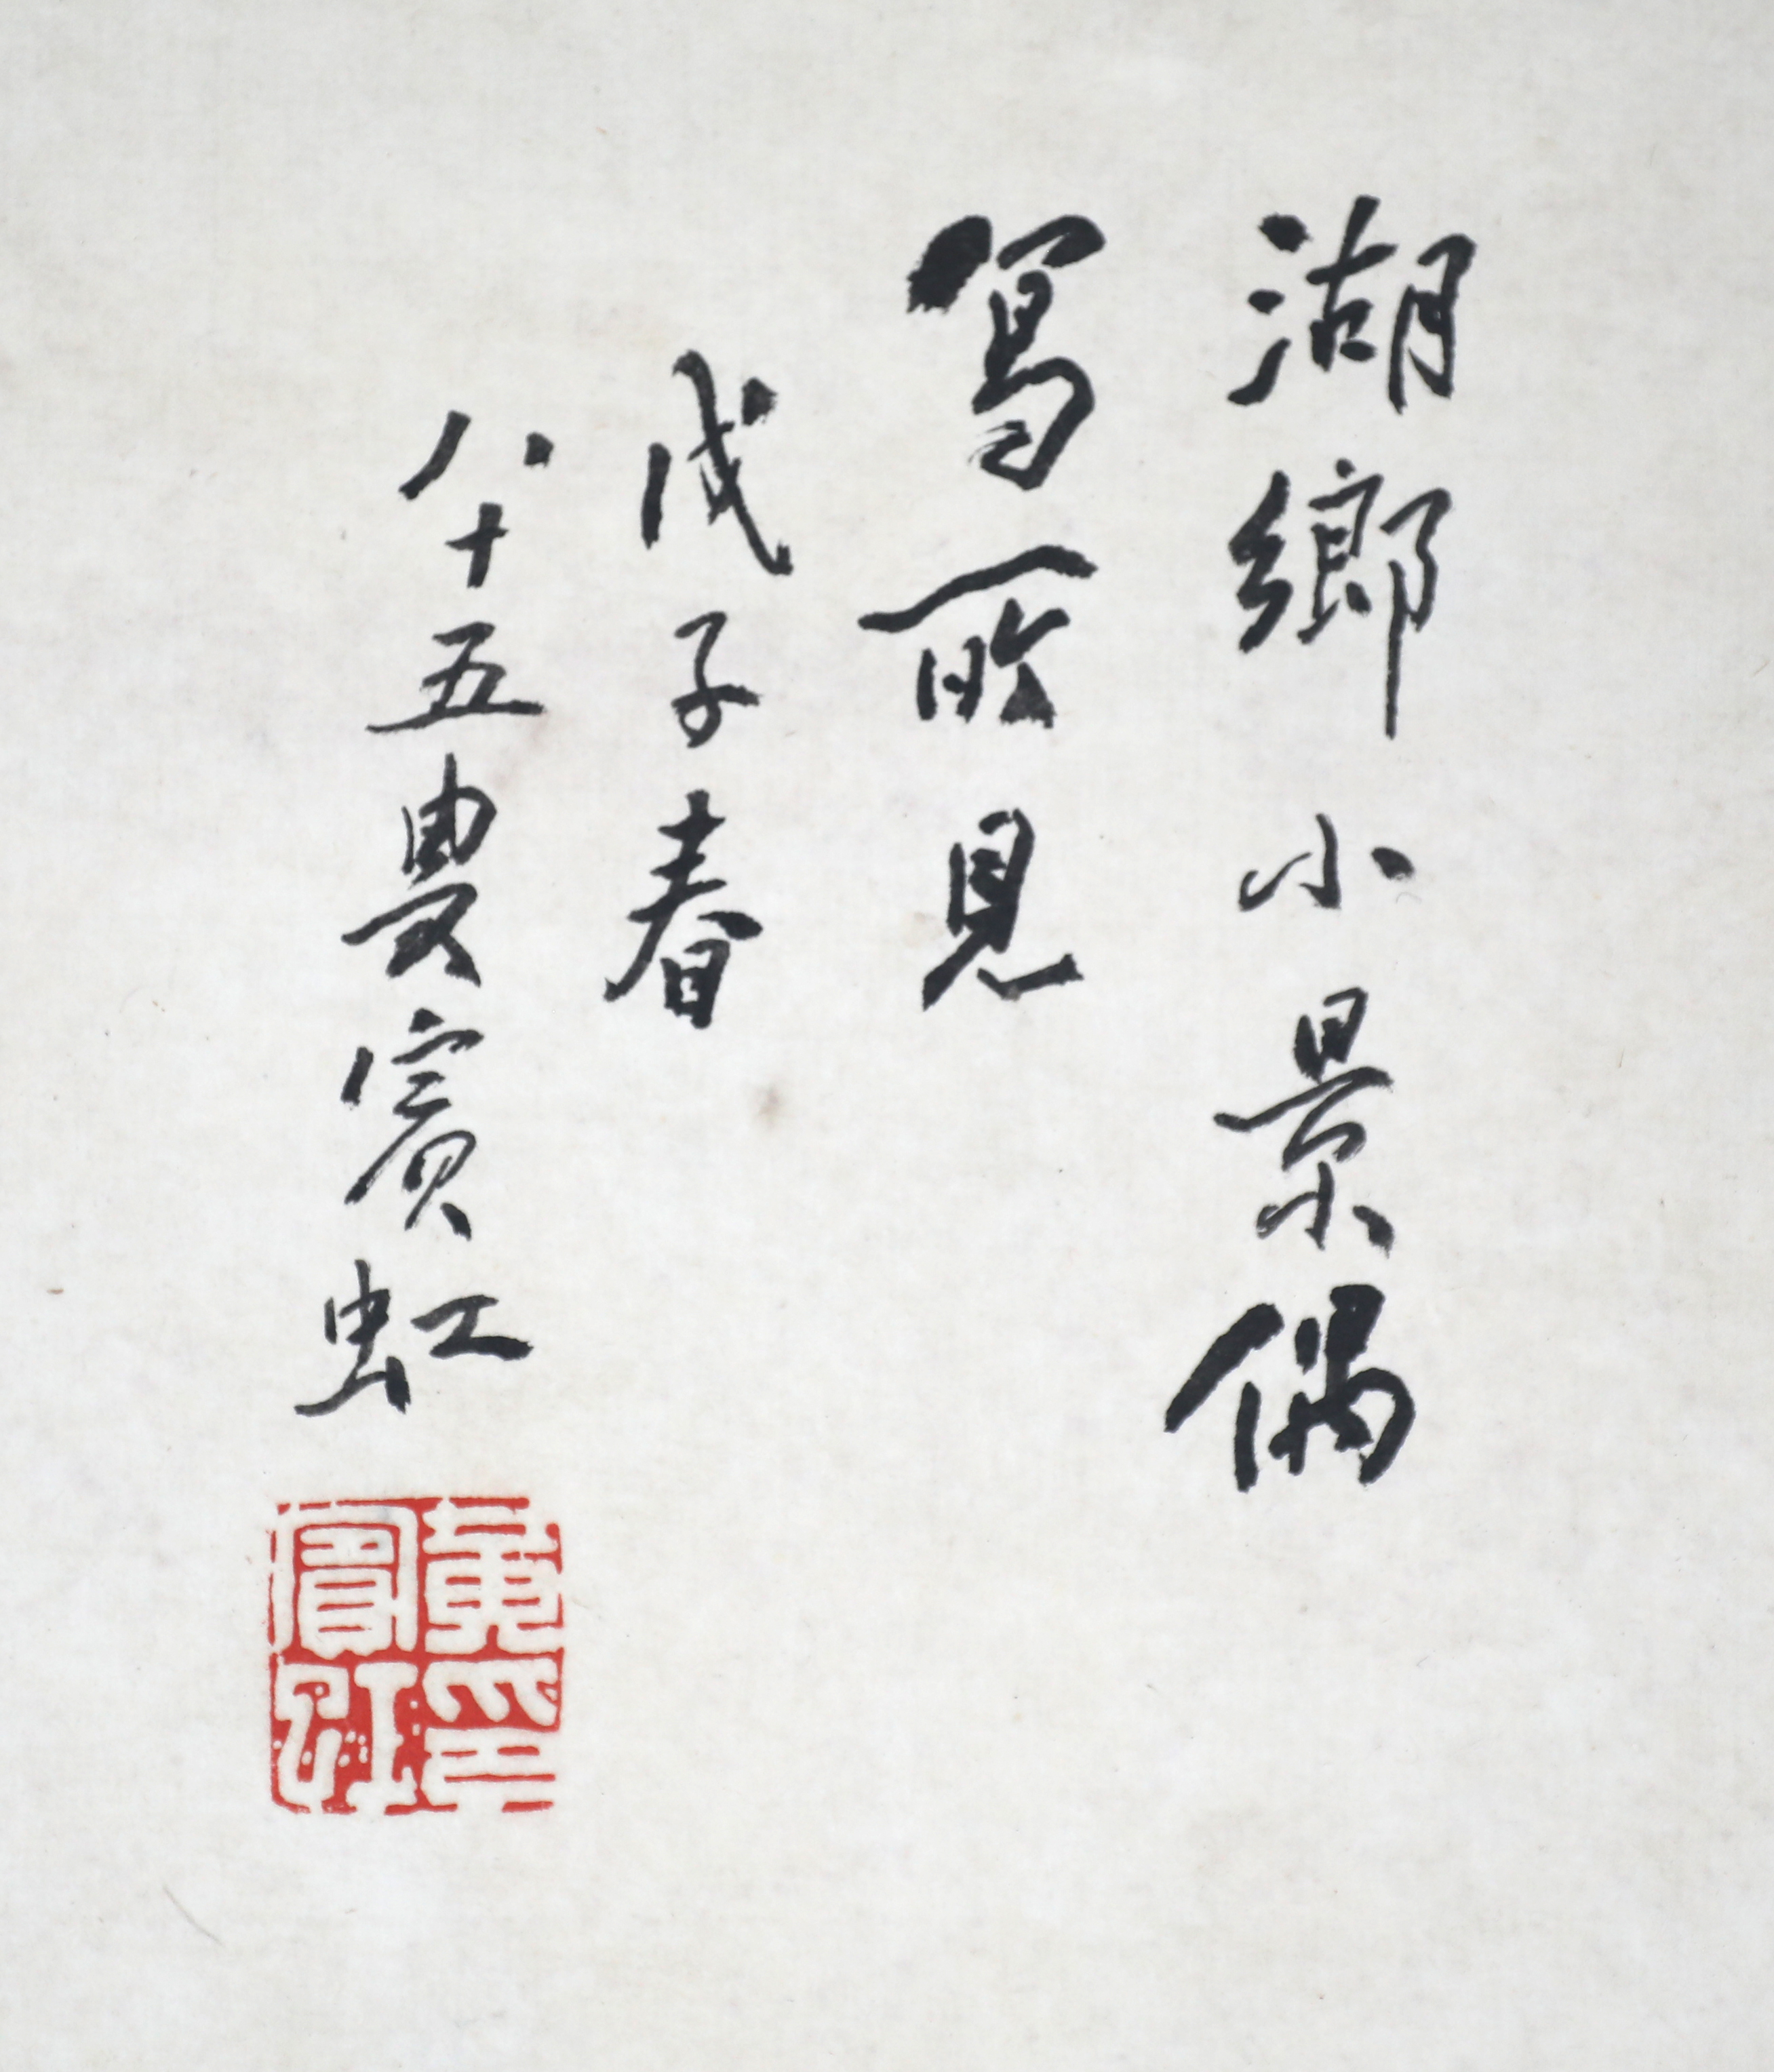 湖鄉小景偶
寫所見
戊子春
八十五叟賓虹
黃印
賓虹